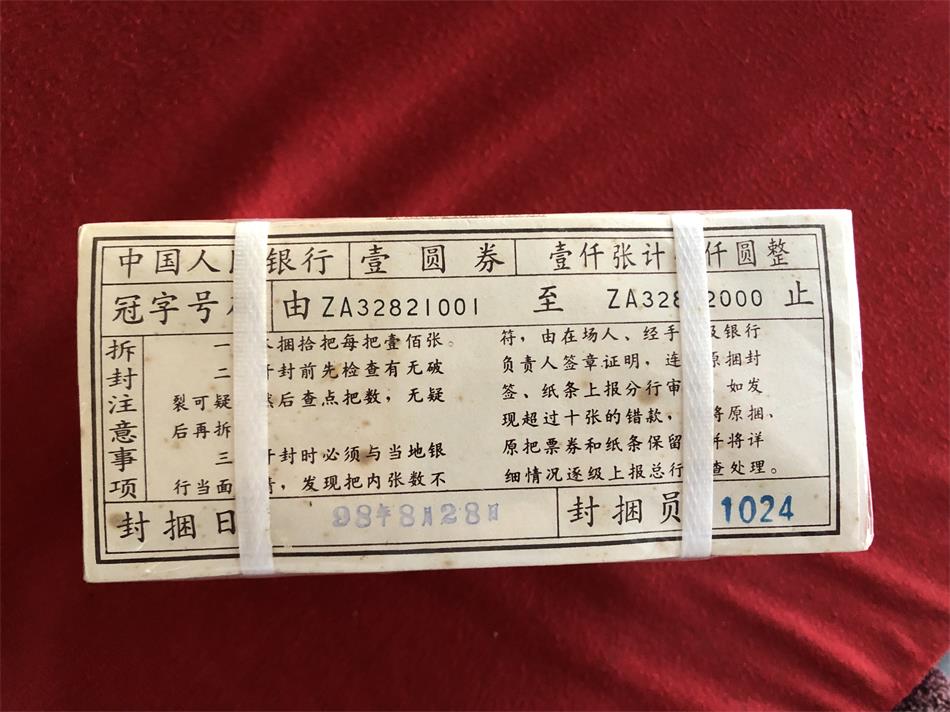 中国人 银行 壹圆券 壹仟张计 仟圆整
冠字号 由ZA32821001 至 ZA328 2000 止
拆封注意事项
一 捆拾把每把壹佰张。
二 封前先检查有无破
裂可疑 然后查点把数,无疑
后再拆
三 开封时必须与当地银
行当面 ,发现把内张数不
符,由在场人、经手 及银行
负责人签章证明,连 原捆封
签、纸条上报分行审 如发
现超过十张的错款, 将原捆、
原把票券和纸条保留 并将详
细情况逐级上报总行 查处理。
封捆日 98年8月28日 封捆员 1024